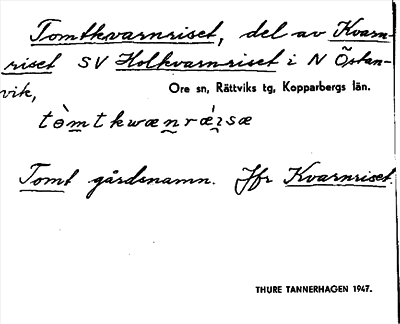 Tomtkvarnriset, del av Kvarn-
riset SV Holkvarnriset i N Östan-
vik,
Ore sn, Rättviks tg, Kopparbergs län.
Tomt gårdsnamn. Jfr Kvarnriset.
THURE TANNERHAGEN 1947.